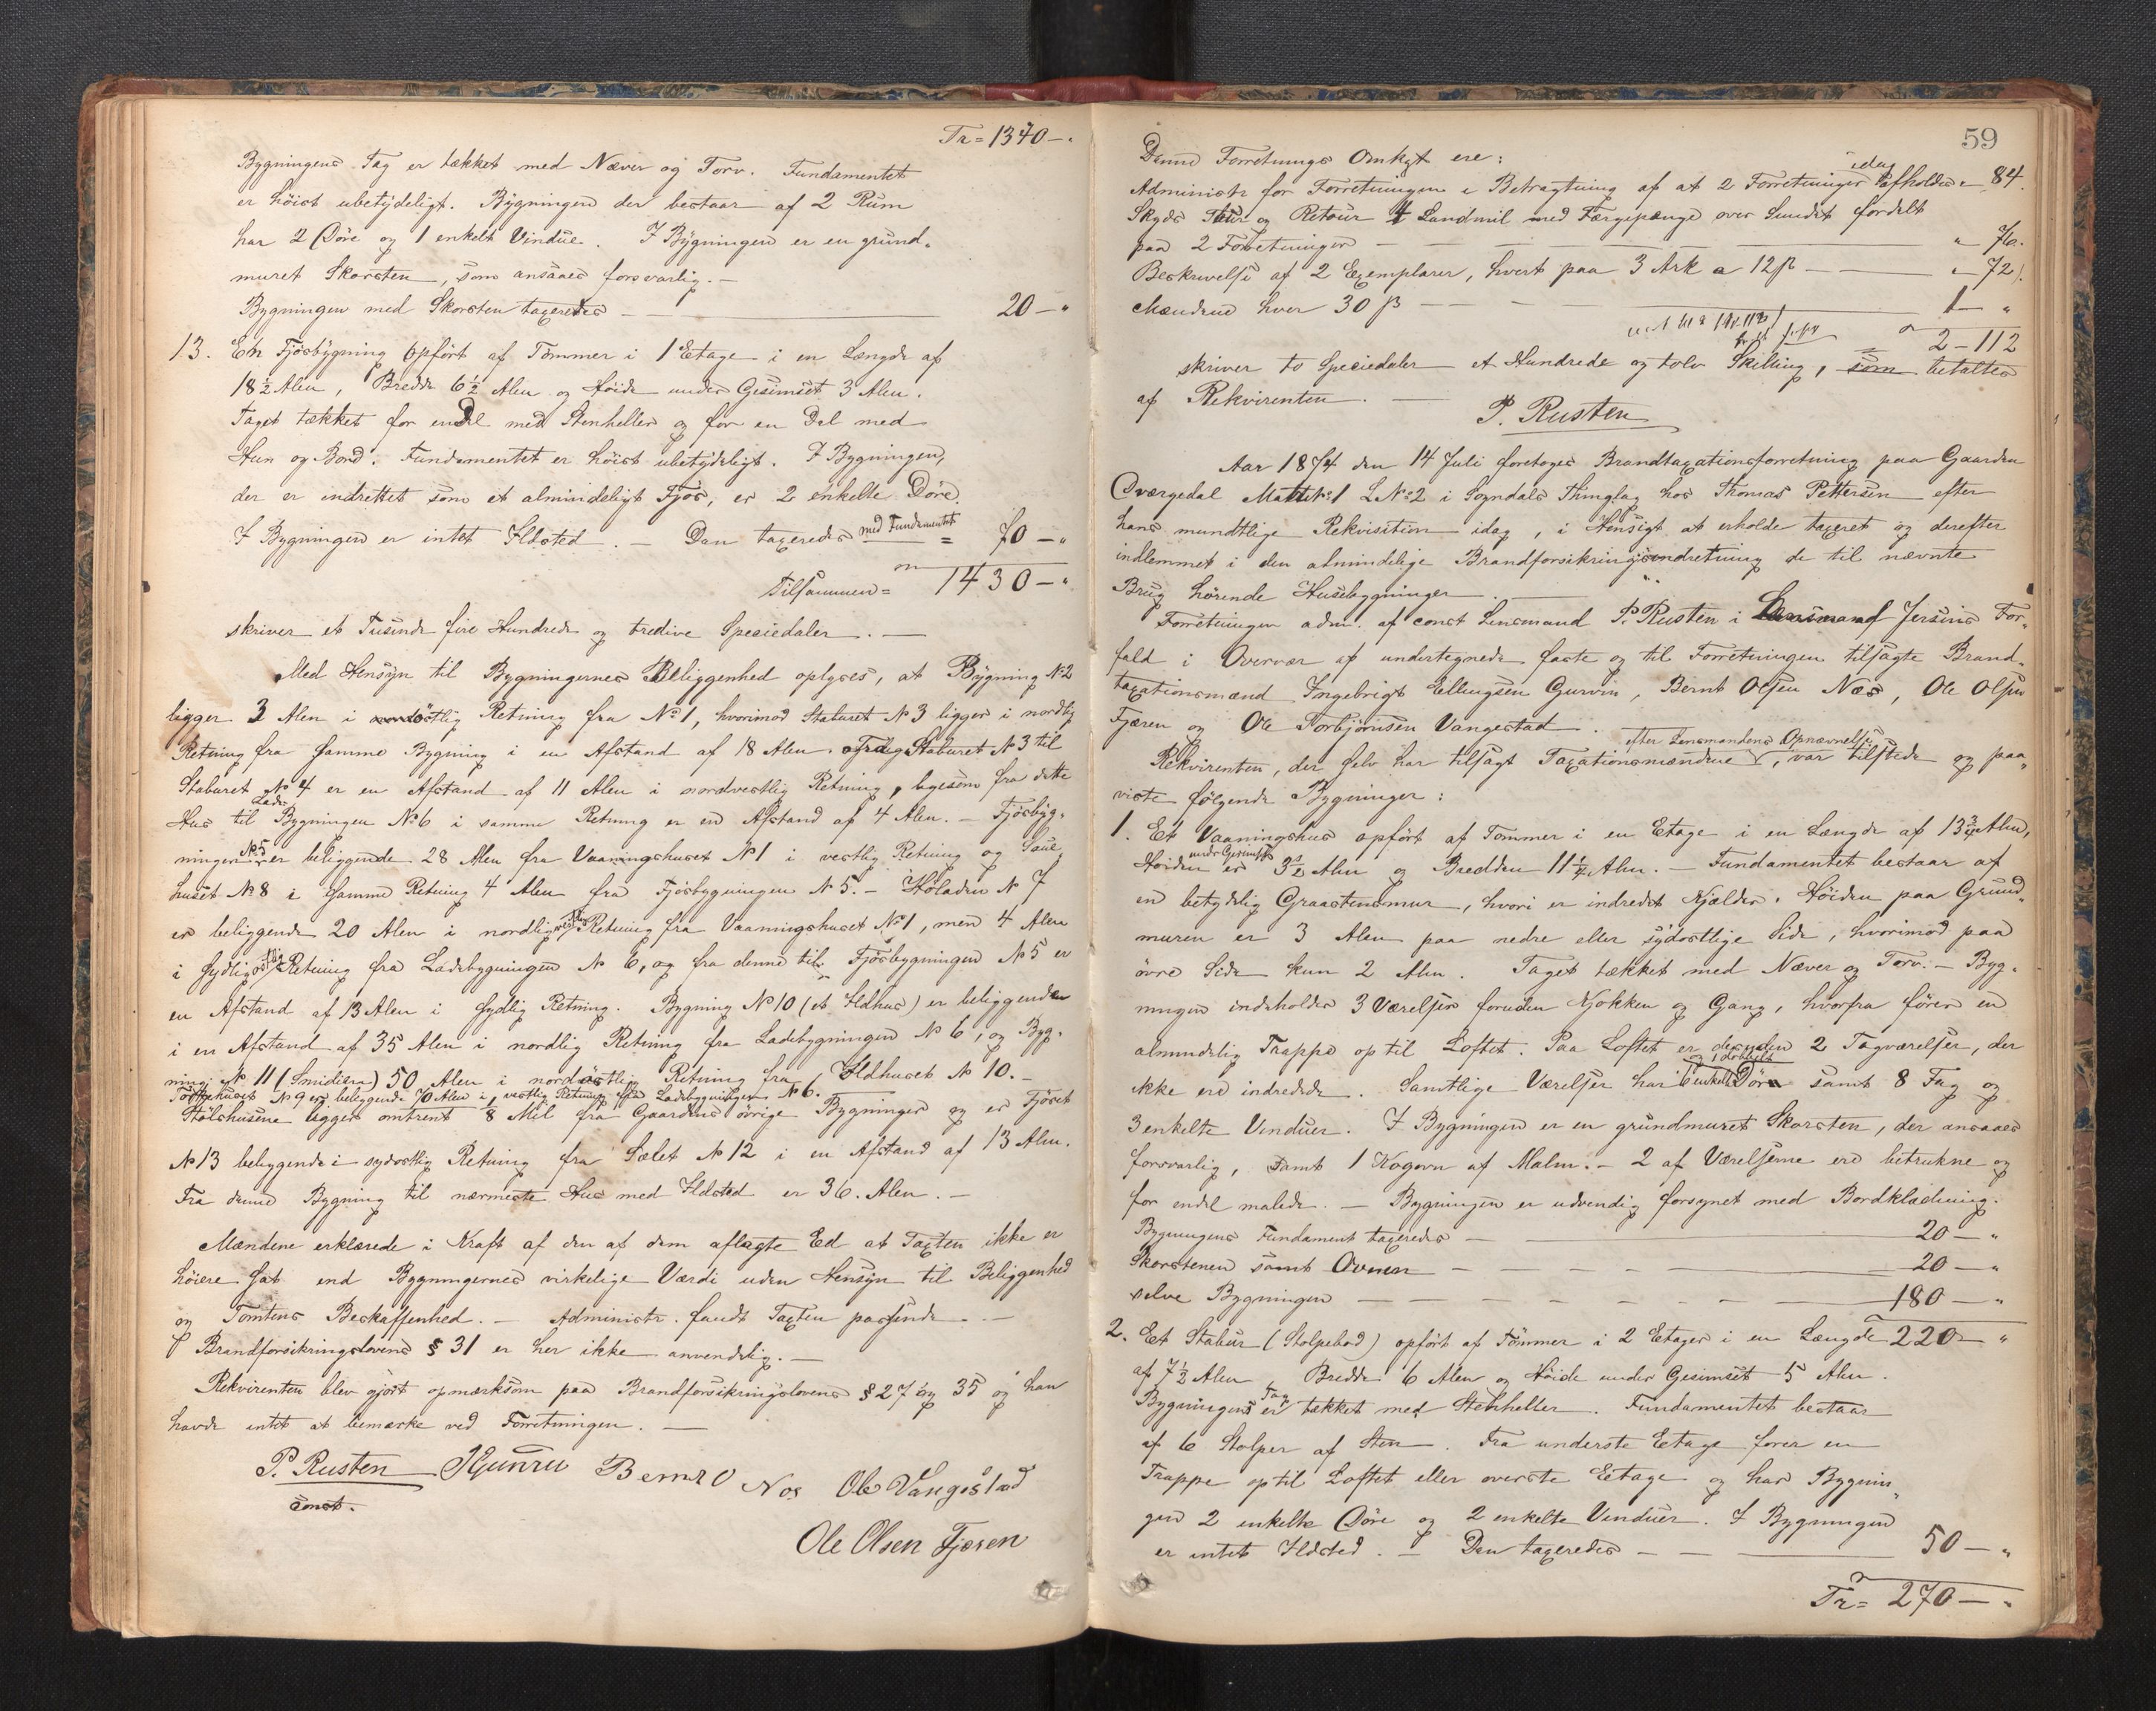 Tr = 1340 - "
Bygningens Tag er tækket med Næver og Torv. Fundamentet
er höist ubetydeligt. Bygningen der bestaar af 2 Rum
har 2 Döre og 1 enkelt Vindue. I Bygningen er en grund-
muret Skorsten, som ansaaes forsvarlig. -
Bygningen med Skorsten taxeredes - 20 - "
13. En Fjösbygning opfört af Tömmer i 1 Etage i en Længde af
18 1/2 Alen, Bredde 6 1/2 Alen og Höide under Gesimset 3 Alen.
Taget tækket for endel med Stenheller og for en Del med
Hun og Bord. Fundamentet er höist ubetydeligt. I Bygningen,
der er indrettet som et almindeligt Fjös, er 2 enkelte Döre.
I Bygningen er intet Ildsted. - Den taxeredes med Fundamentet = 70 - "
Tilsammen = 1430 - "
skriver et Tusinde fire Hundrede og tredive Speciedaler. -
Med Hensyn til Bygningernes Beliggenhed oplyses, at Bygning No 2
ligger 3 Alen i nordöstlig Retning fra No 1, hvorimod Staburet No 3 ligger i nordlig
Retning fra samme Bygning i en Afstand af 18 Alen. Fra Staburet No 3 til
Staburet No 4 er en Afstand af 11 Alen i nordvestlig Retning, ligesom fra dette
Hus til Lade Bygningen No 6 i samme Retning er en Afstand af 4 Alen. - Fjösbyg-
ningen No 5 er beliggende 28 Alen fra Vaaningshuset No 1 i vestlig Retning og Saue
huset No 8 i samme Retning 4 Alen fra Fjösbygningen No 5. - Höladen No 7
er beliggende 20 Alen i nordligvestlig Retning fra Vaaningshuset No 1, men 4 Alen
i sydligöstlig Retning fra Ladebygningen No 6, og fra denne til Fjösbygningen No 5 er
en Afstand af 13 Alen i sydlig Retning. Bygning No 10 (et Ildhus) er beliggende
i en Afstand af 35 Alen i nordlig Retning fra Ladebygningen No 6, og Byg-
ning No 11 (Smidien) 50 Alen i nordöstlig Retning fra Ildhuset No 10. -
No 9 er beliggende 70 Alen i vestlig Retning fra Ladebygningen No 6.
Stölshusene ligger omtrent 8 Mil fra Gaardens övrige Bygninger og er Fjöset
No 13 beliggende i sydostlig Retning fra Sælet No 12 i en Afstand af 13 Alen.
Fra denne Bygning til nærmeste Hus med Ildsted er 36. Alen. -
Mændene erklærede i Kraft af den af dem aflagte Ed at Taxten ikke er
höiere sat end Bygningernes virkelige Værdi uden Hensyn til Beliggenhed
og Tomtens Beskaffenhed. - Administr. fandt Taxten passende. -
Brandforsikringslovens § 31 er her ikke anvendelig. -
Rekvirenten blev gjort opmærksom paa Brandforsikringslovens § 27 og 35 og han
havde intet at bemærke ved Forretningen. -
P. Rusten Bernt O Nos Ole Vangestad
const.
Ole Olsen Fjæren
59
Denne Forretnings Omkgt ere:
Administr for Forretningen i Betragtning af at 2 Forretninger idag afholdes " - 84.
Skyds Tour og Retour 4 Landmil med Færgepenge over Sundet fordelt
paa 2 Forretninger - " 76.
Beskrivelse af 2 Exemplarer, hvert paa 3 Ark a 12 β - " - 72.
Mændene hver 30 β - 1 - "
2 - 112
skriver to Speciedaler et Hundrede og tolv Skilling, som betaltes
af Rekvirenten. -
P. Rusten
Aar 1874 den 14 Juli foretoges Brandtaxationsforretning paa Gaarden
Qværgedal Matr No 1 L No 2 i Sogndals Thinglag hos Thomas Pettersen efter
hans mundtlige Rekvisition idag, i Hensigt at erholde taxeret og derefter
indlemmet i den almindelige Brandforsikringsindretning de til nævnte
Brug hörende Husebygninger. -
Forretningen adm. af const Lensmand P. Rusten i Lensmand Jersins For-
fald i Overvær af undertegnede faste og til Forretningen tilsagte Brand-
taxationsmænd Ingebrigt Ellingsen Gurvin, Bernt Olsen Næs, Ole Olsen
Fjæren og Ole Torbjörnsen Vangestad.
Rekvirenten, der selv har tilsagt Taxationsmændene efter Lensmandens Opnævnelse, var tilstede og paa-
viste fölgende Bygninger:
1. Et Vaaningshus opfört af Tömmer i en Etage i en Længde af 13 3/4 Alen,
Höiden under Gesimset er 3 1/2 Alen og Bredden 11 1/4 Alen. - Fundamentet bestaar af
en betydelig Graastensmur, hvori er indredet Kjælder. Höiden paa Grund-
muren er 3 Alen paa nedre eller sydostlige Side, hvorimod paa
övre Side kun 2 Alen. Taget tækket med Næver og Torv. - Byg-
ningen indeholder 3 Værelser foruden Kjökken og Gang, hvorfra förer en
almindelig Trappe op til Loftet. Paa Loftet er desuden 2 Tagværelser, der
ikke ere indredede. Samtlige Værelser har enkelte og 1 dobbelt Döre samt 8 Fag og
3 enkelte Vinduer. I Bygningen er en grundmuret Skorsten, der ansaaes
forsvarlig, samt 1 Kogovn af Malm. - 2 af Værelserne ere betrukne og
for endel malede. - Bygningen er udvendig forsynet med Bordklædning.
Bygningens Fundament taxeredes - 20 - "
Skorstenen samt Ovnen - 20 - "
selve Bygningen - 180 - "
2. Et Stabur (Stolpebod) opfört af Tömmer i 2 Etager i en Længde 220 - "
af 7 1/2 Alen, Bredde 6 Alen og Höide under Gesimset 5 Alen.
Bygningens Tag er tækket med Stenheller. Fundamentet bestaar
af 6 Stolper af Sten. Fra underste Etage förer en
Trappe op til Loftet eller overste Etage og har Bygnin-
gen 2 enkelte Döre og 2 enkelte Vinduer. I Bygningen
er intet Ildsted. - Den taxeredes - 50 - "
Tr = 270 - "